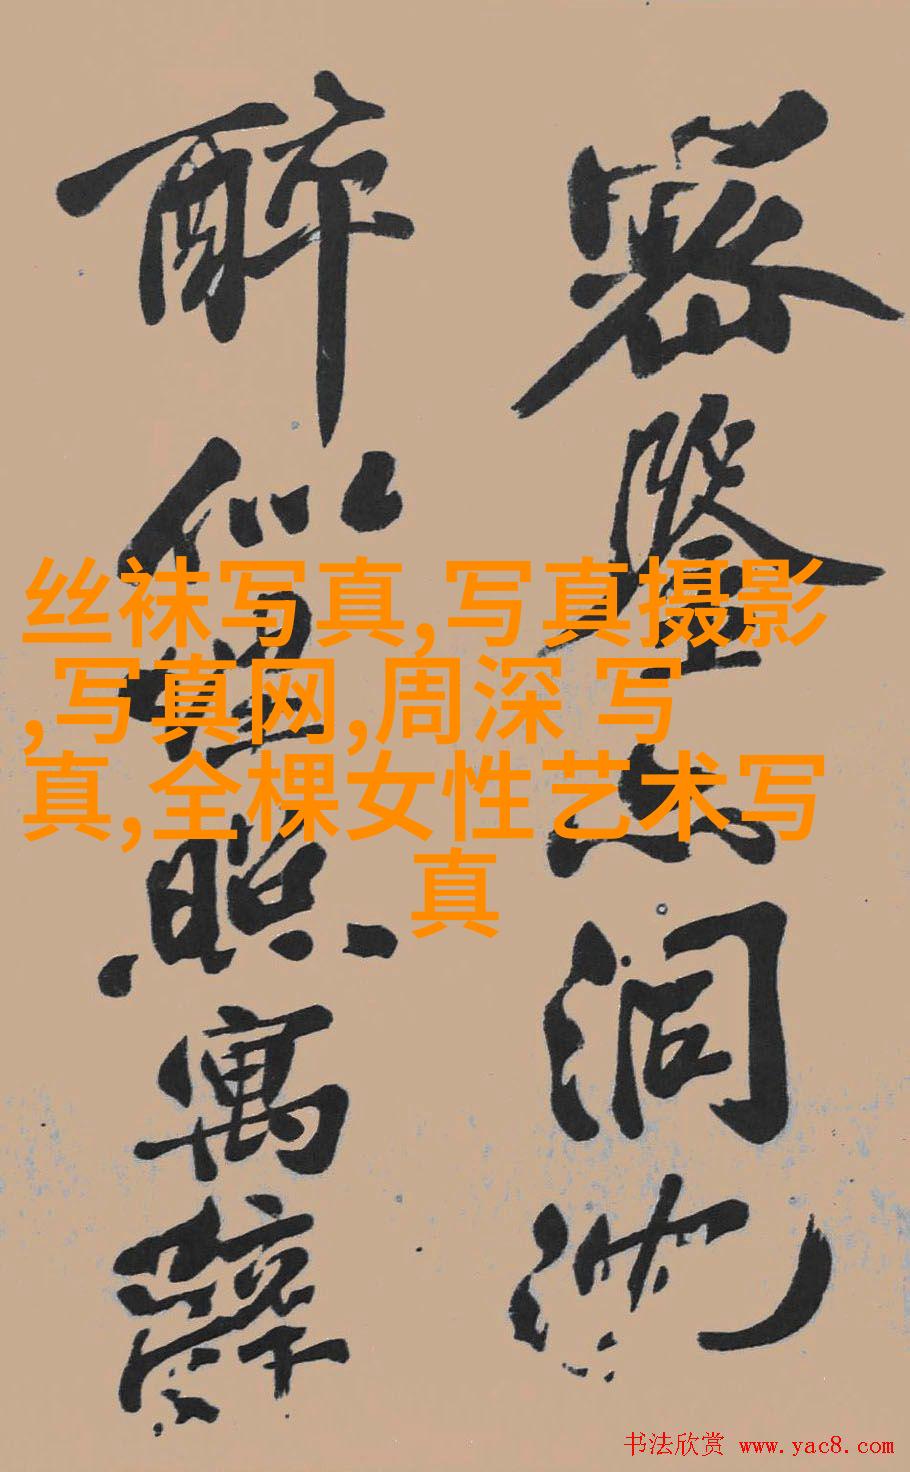 密鑒亦洞沈
醉似埋照寓辭
丝袜写真,写真摄影
,写真网,周深 写
真,全棵女性艺术写
真
书法欣赏 www.yac8.com